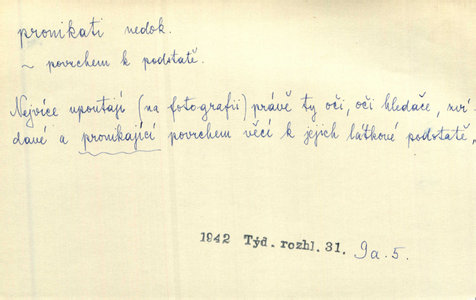 pronikati nedok.
~ povrchem k podstatě.
Nejvíce upoutají (na fotografii) právě ty oči, oči hledače, zví-
davé a pronikající povrchem věcí k jejich látkové podstatě,
1942 Týd. rozhl. 31. 9a.5.